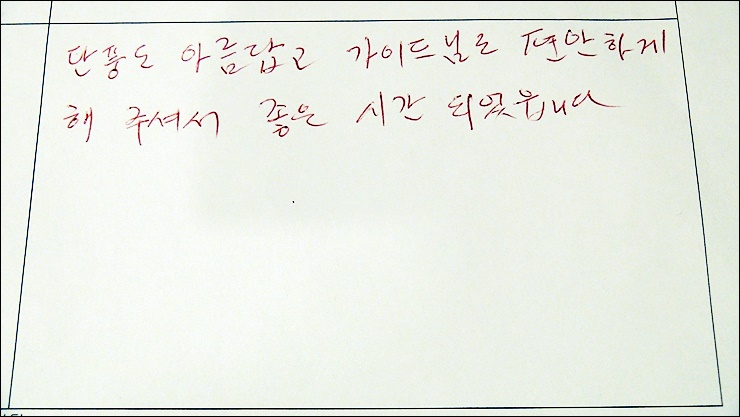 단풍도 아름답고 가이드님도 편안하게
해 주셔서 좋은 시간 되었습니다